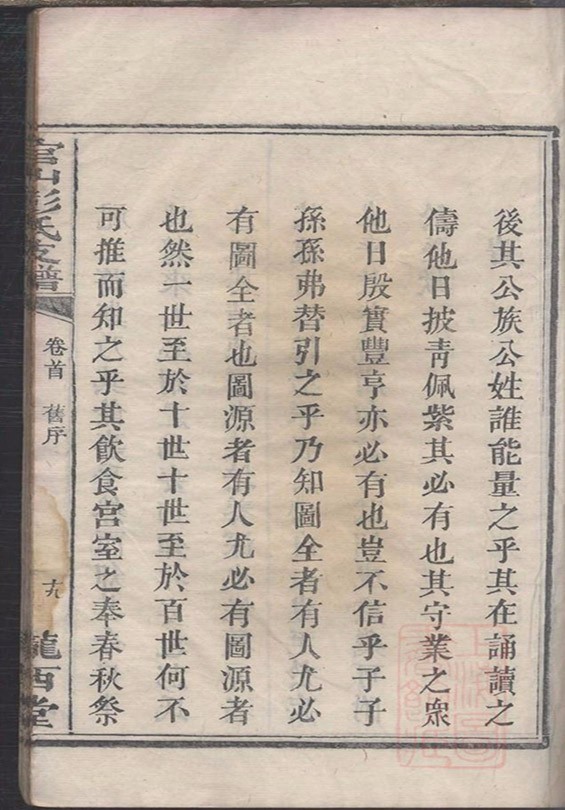 後其公族公姓誰能量之乎其在誦讀之
儔他日披青佩紫其必有也其守業之眾
他日殷實豐亨亦必有也豈不信乎子子
孫孫弗替引之乎乃知圖全者有人尤必
有圖全者也圖源者有人尤必有圖源者
也然一世至於十世十世至於百世何不
可推而知之乎其飲食宮室之奉春秋祭
官山彭氏支譜
卷首 舊序
十九
隴西堂